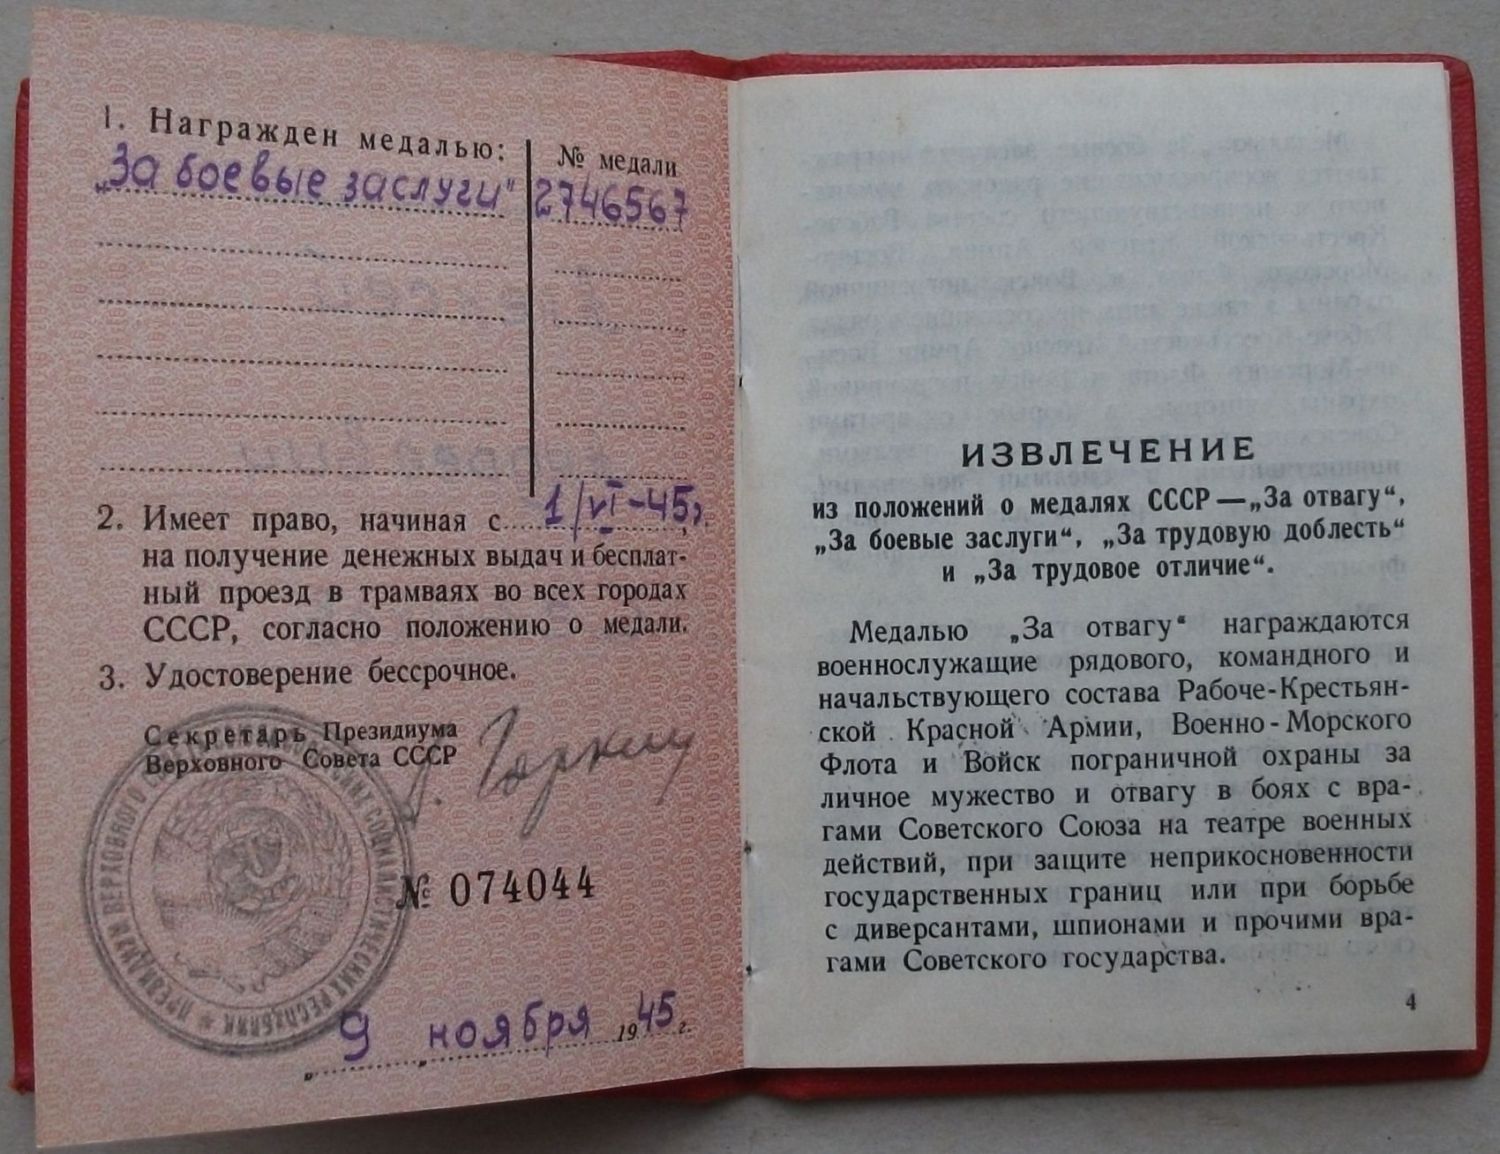 1. Награжден медалью:
№ медали
„За боевые заслуги"
2746567
2. Имеет право, начиная с 1/VI-45г.,
на получение денежных выдач и бесплат-
ный проезд в трамваях во всех городах
СССР, согласно положению о медали.
3. Удостоверение бессрочное.
Секретарь Президиума
Верховного Совета СССР
А. Горкин
№ 074044
„9„ ноября 1945 г.
ИЗВЛЕЧЕНИЕ
из положений о медалях СССР—„За отвагу“,
„За боевые заслуги“, „За трудовую доблесть“
и „За трудовое отличие“.
Медалью „За отвагу“ награждаются
военнослужащие рядового, командного и
начальствующего состава Рабоче-Крестьян-
ской Красной Армии, Военно-Морского
Флота и Войск пограничной охраны за
личное мужество и отвагу в боях с вра-
гами Советского Союза на театре военных
действий, при защите неприкосновенности
государственных границ или при борьбе
с диверсантами, шпионами и прочими вра-
гами Советского государства.
4